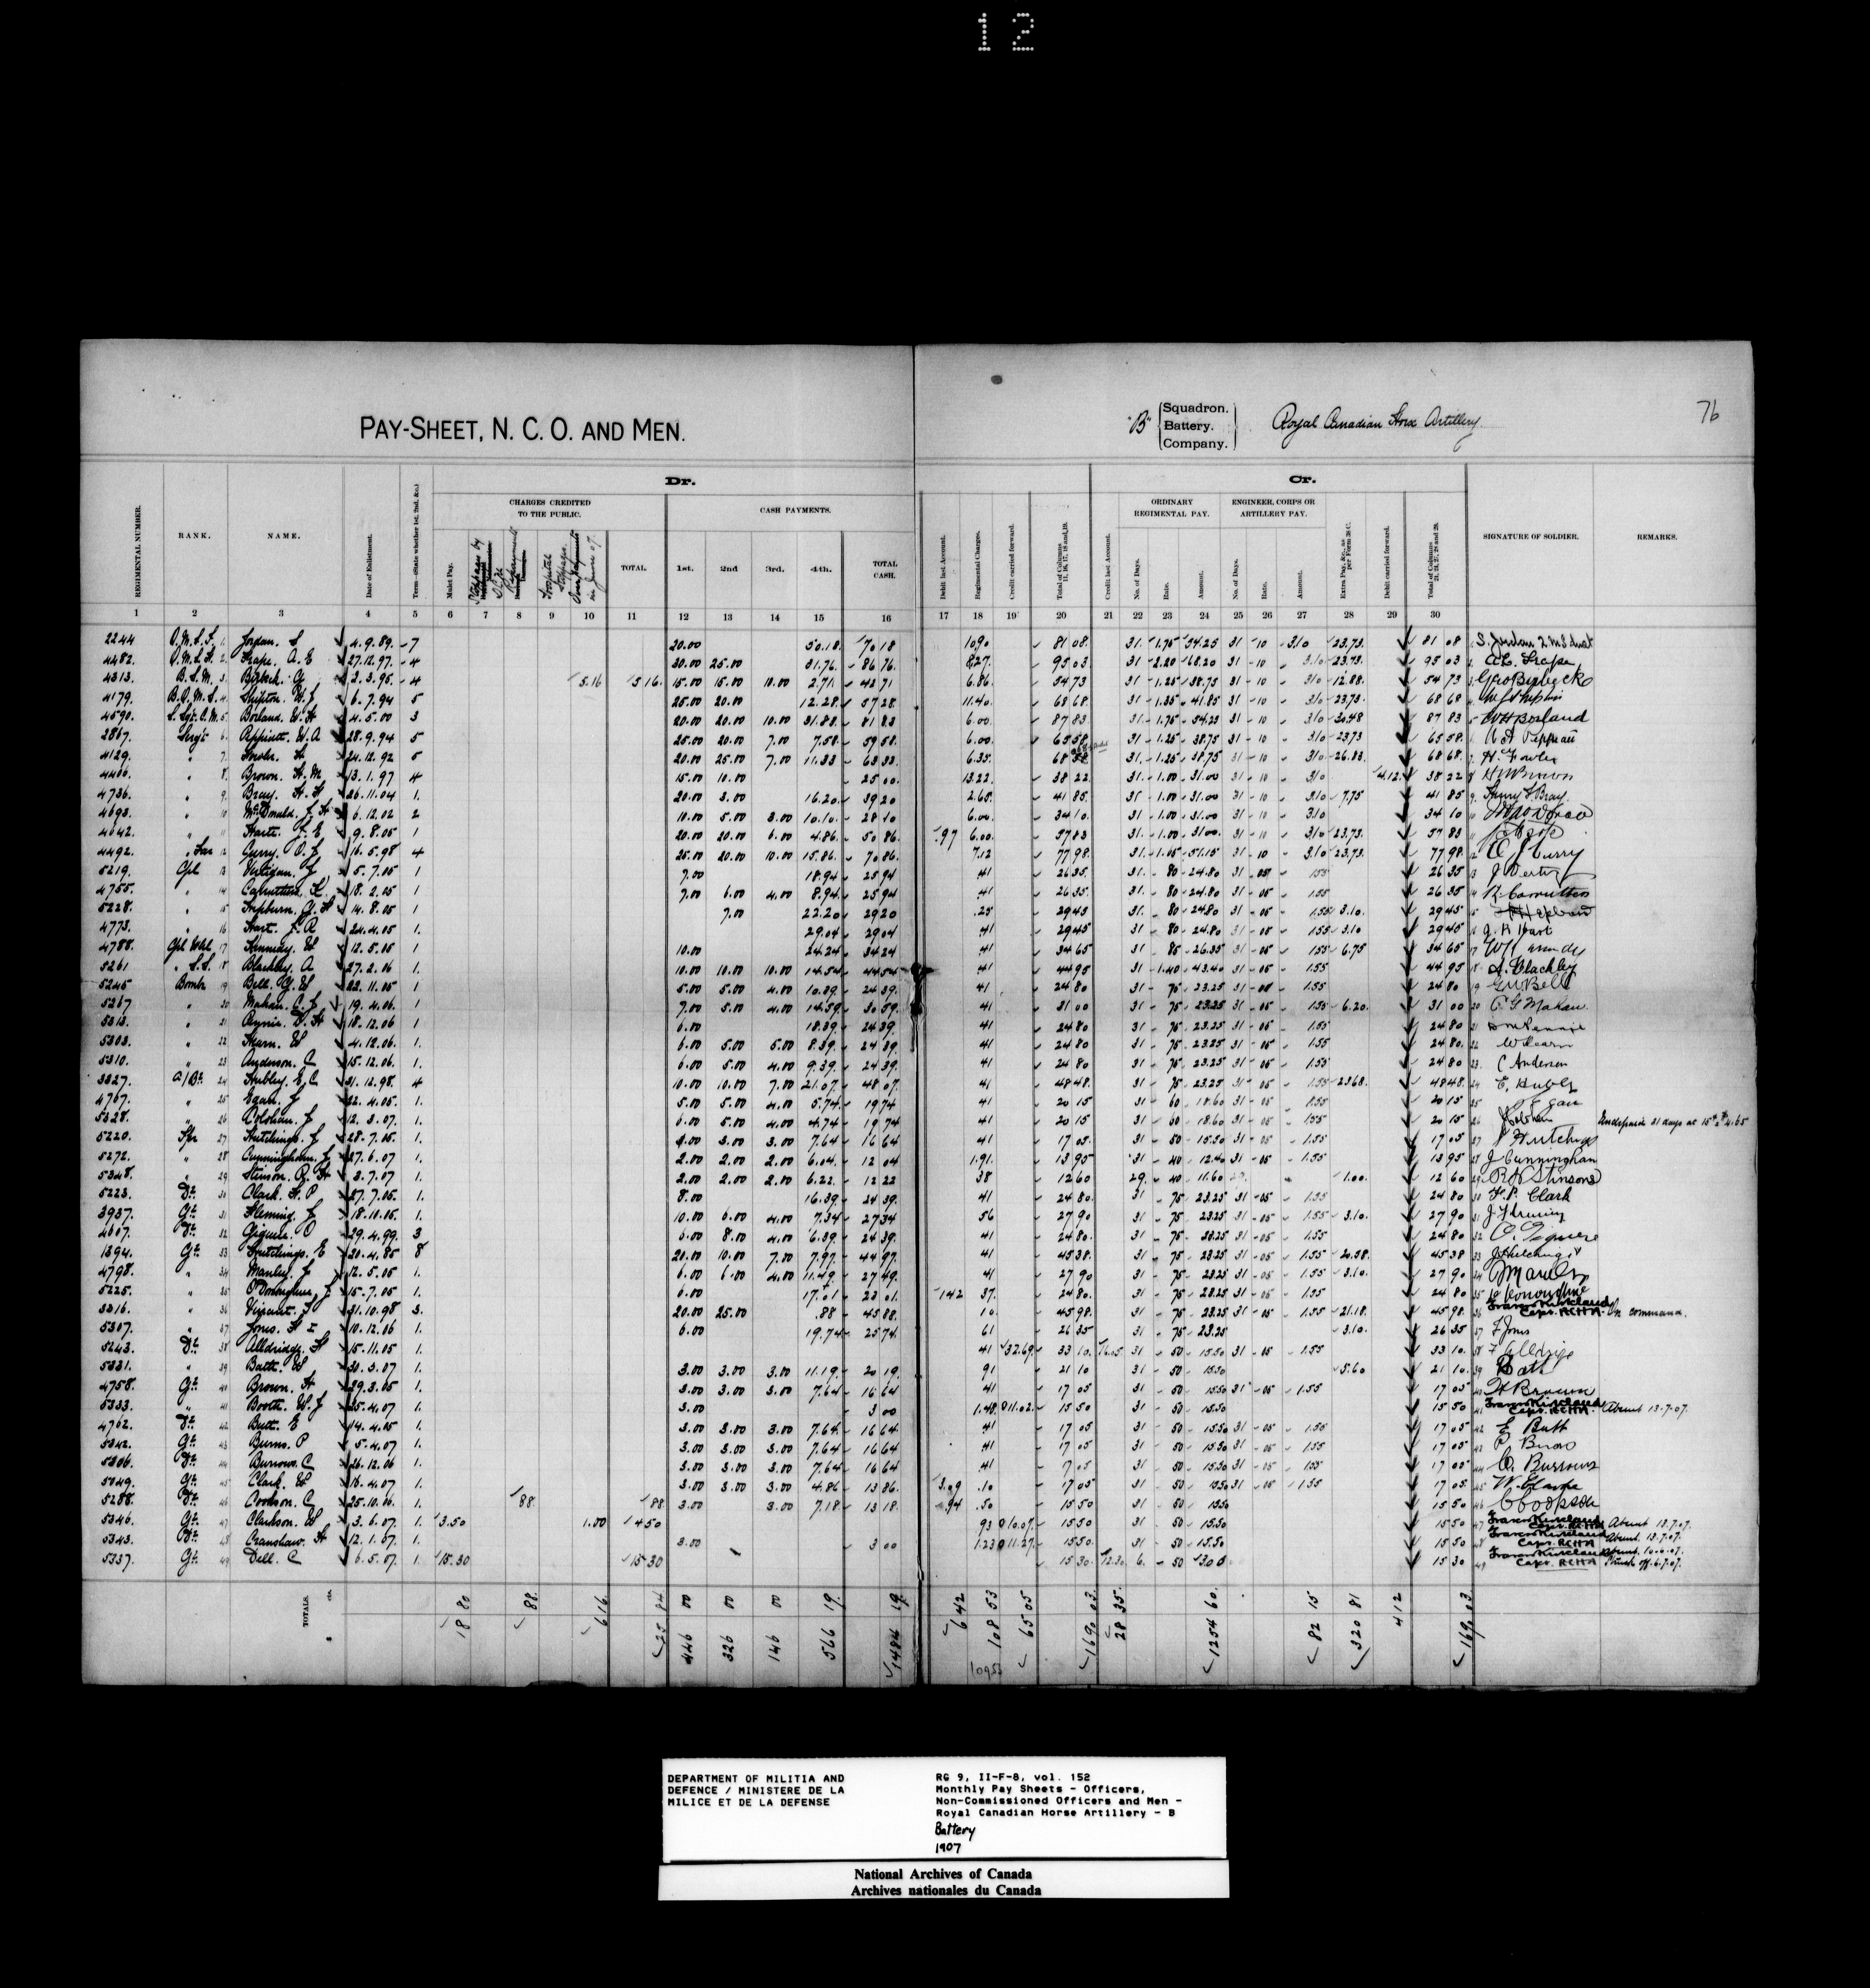 12
PAY-SHEET, N. C. O. AND MEN.
"B" Squadron. Battery. Company.
Royal Canadian Horse Artillery
76
Dr.
Cr.
CHARGES CREDITED TO THE PUBLIC.
CASH PAYMENTS.
ORDINARY REGIMENTAL PAY.
ENGINEER, CORPS OR ARTILLERY PAY.
REGIMENTAL NUMBER.
RANK.
NAME.
Date of Enlistment.
Term—State whether 1st, 2nd, &c.)
Mulct Pay.
Hospital Stoppages
Over Payments in June 07.
TOTAL.
1st. 2nd 3rd. 4th. TOTAL CASH.
Debit last Account.
Regimental Charges.
Credit carried forward.
Total of Columns 11, 16, 17, 18 and 19.
Credit last Account.
No. of Days. Rate. Amount.
No. of Days. Rate. Amount.
Extra Pay, &c., as per Form 38 C.
Debit carried forward.
Total of Columns 21, 24, 27, 28 and 29.
SIGNATURE OF SOLDIER.
REMARKS.
1 2 3 4 5 6 7 8 9 10 11 12 13 14 15 16 17 18 19 20 21 22 23 24 25 26 27 28 29 30
2244 1 Jordan. S 4.9.89. 7 20.00 50.18 70 18 10.90 81 08 31 1.75 54.25 31 10 3.10 23.73 81 08
4482. 2 Frape. A. E 27.12.97. 4 30.00 25.00 31.76 86 76 8.27 95 03 31 2.20 68.20 31 10 3.10 23.73 95 03
4313. B.S.M. 3 Birbeck. G 2.3.95. 4 5.16 5.16 15.00 15.00 10.00 2.71 42 71 6.86 54 73 31 1.25 38.75 31 10 3.10 12.88 54 73 Geo Birbeck
4179. B.Q.M.S. 4 Shipton. W. J 6.7.94 5 25.00 20.00 12.28 57 28 11.40 68 68 31 1.35 41.85 31 10 3.10 23.73 68 68
4590. 5 Borland. W. H 4.5.00 3 20.00 20.00 10.00 31.83 81 83 6.00 87 83 31 1.75 54.25 31 10 3.10 30.48 87 83 W H Borland
2867. Sergt 6 28.9.94 5 25.00 20.00 7.00 7.58 59 58 6.00 65 58 31 1.25 38.75 31 10 3.10 23.73 65 58
4129. " 7 24.12.92 5 20.00 25.00 7.00 11.33 63 33 6.35 31 1.25 38.75 31 10 3.10 26.83 68 68 H. Fowler
4406. " 8 Brown. H. M 13.1.97 4 15.00 10.00 25 00 13.22 38 22 31 1.00 31.00 31 10 3.10 4.12 38 22 H M Brown
4736. " 9 Bray. H. S 26.11.04 1. 20.00 3.00 16.20 39 20 2.65 41 85 31 1.00 31.00 31 10 3.10 7.75 41 85 Henry S Bray
4693. " 10 McDonald. J. H 6.12.02 2 10.00 5.00 3.00 10.10 28 10 6.00 34 10 31 1.00 31.00 31 10 3.10 34 10
4642. " 11 9.8.05 1 20.00 20.00 6.00 4.86 50 86 .97 6.00 57 83 31 1.00 31.00 31 10 3.10 23.73 57 83
4492. " Far 12 Curry. O. J 16.5.98 4 25.00 20.00 10.00 15.86 70 86 7.12 77 98 31 1.65 51.15 31 10 3.10 23.73 77 98 O J Curry
5219. Cpl 13 Vertigan. J 5.7.05 1 7.00 18.94 25 94 41 26 35 31 80 24.80 31 05 1.55 26 35
4755. " 14 Carruthers. R 18.2.05 1 7.00 6.00 4.00 8.94 25 94 41 26 35 31 80 24.80 31 05 1.55 26 35 R Carruthers
5228. " 15 Hepburn. G. H 14.8.05 1 7.00 22.20 29 20 .25 29 45 31 80 24.80 31 05 1.55 3.10 29 45
4773. " 16 Hart. J. R 24.4.05 1. 29.04 29 04 41 29 45 31 80 24.80 31 05 1.55 3.10 29 45 J. R Hart
4788. Cpl Whl. 17 12.5.05 1 10.00 24.24 34 24 41 34 65 31 85 26.35 31 05 1.55 6.75 34 65
5261 " S.S. 18 Blackley. A 27.2.06 1. 10.00 10.00 10.00 14.54 44 54 41 44 95 31 1.40 43.40 31 05 1.55 44 95 A. Blackley
5245 Bombr 19 Bell. G. W 22.11.05 1. 5.00 5.00 4.00 10.39 24 39 41 24 80 31 75 23.25 31 05 1.55 24 80 G W Bell
5267 " 20 Mahan. C. J 19.4.06. 1 7.00 5.00 4.00 14.59 30 59 41 31 00 31 75 23.25 31 05 1.55 6.20 31 00
5313. " 21 18.12.06 1 6.00 18.39 24 39 41 24 80 31 75 23.25 31 05 1.55 24 80
5303. " 22 Hearn. W 4.12.06. 1. 6.00 5.00 5.00 8.39 24 39 41 24 80 31 75 23.25 31 05 1.55 24 80 W Hearn
5310. " 23 Anderson. C 15.12.06. 1. 6.00 5.00 4.00 9.39 24 39 41 24 80 31 75 23.25 31 05 1.55 24 80 C Anderson
3327. a/Br. 24 Hubley. E. C 31.12.98. 4 10.00 10.00 7.00 21.07 48 07 41 48 48 31 75 23.25 31 05 1.55 23.68 48 48 E. Hubley
4767. " 25 Egan. J 22.4.05. 1. 5.00 5.00 4.00 5.74 19 74 41 20 15 31 60 18.60 31 05 1.55 20 15 Egan
5328. " 26 12.3.07. 1. 6.00 5.00 4.00 4.74 19 74 41 20 15 31 60 18.60 31 05 1.55 20 15 Underpaid 31 days at 15¢ $4.65
5220. 27 Hutchings. J 28.7.05. 1. 3.00 3.00 7.64 16 64 41 17 05 31 50 15.50 31 05 1.55 17 05 J Hutchings
5272. " 28 Cunningham. J 27.6.07 1. 2.00 2.00 2.00 6.04 12 04 1.91 13 95 31 40 12.40 31 05 1.55 13 95 J Cunningham
5348. " 29 Stinson. R. H 3.7.07 1. 2.00 2.00 2.00 6.22 12 22 38 12 60 29 40 11.60 1.00 12 60 R H Stinson
5223. Dr. 30 Clark. F. P 27.7.05. 1. 8.00 16.39 24 39 41 24 80 31 75 23.25 31 05 1.55 24 80 F. P. Clark
3937. Gr. 31 Fleming. J 18.10.05. 1. 10.00 6.00 4.00 7.34 27 34 56 27 90 31 75 23.25 31 05 1.55 3.10 27 90 J. Fleming
4607. Dr. 32 Giguere. O 29.4.99. 3 6.00 8.00 4.00 6.39 24 39 41 24 80 31 75 23.25 31 05 1.55 24 80 O. Giguere
1394. Gr. 33 Hutchings. E 20.4.85 8 20.00 10.00 7.00 7.97 44 97 41 45 38 31 75 23.25 31 05 1.55 20.58 45 38
4798. " 34 Manley. J 12.5.05 1. 6.00 6.00 4.00 11.49 27 49 41 27 90 31 75 23.25 31 05 1.55 3.10 27 90 J Manley
5225. " 35 O'Donoghue. J 15.7.05 1. 6.00 17.01 23 01 1 42 37 24 80 31 75 23.25 31 05 1.55 24 80
3316. " 36 Vincent. J 31.10.98 3. 20.00 25.00 .88 45 88 10 45 98 31 75 23.25 31 05 1.55 21.18 45 98 Capt. RCHA On command.
5307. " 37 Jones. F. I 10.12.06 1. 6.00 19.74 25 74 61 26 35 31 75 23.25 3.10 26 35 F Jones
5243. Dr. 38 Alldridge. F 15.11.05 1. 41 32.69 33 10 16.05 31 50 15.50 31 05 1.55 33 10
5331. " 39 Bath. W 30.3.07 1. 3.00 3.00 3.00 11.19 20 19 91 21 10 31 50 15.50 5.60 21 10 Bath
4758. Gr. 40 Brown. H 29.3.05 1. 3.00 3.00 3.00 7.64 16 64 41 17 05 31 50 15.50 31 05 1.55 17 05 H Brown
5333. " 41 Booth. W. J 25.4.07 1. 3.00 3 00 1.48 11.02 15 50 31 50 15.50 15 50 Capt. RCHA. Absent 13-7-07.
4762. Dr. 42 Butt. E 14.4.05 1. 3.00 3.00 3.00 7.64 16 64 41 17 05 31 50 15.50 31 05 1.55 17 05 E Butt
5342. Gr. 43 Burns. P 5.4.07 1. 3.00 3.00 3.00 7.64 16 64 41 17 05 31 50 15.50 31 05 1.55 17 05 P Burns
5306. Dr. 44 Burrows. C 26.12.06 1. 3.00 3.00 3.00 7.64 16 64 41 17 05 31 50 15.50 31 05 1.55 17 05 C. Burrows
5049. Gr. 45 Clark. W 16.4.07 1. 3.00 3.00 3.00 4.86 13 86 3.09 .10 17 05 31 50 15.50 31 05 1.55 17 05
5288. Dr. 46 Cookson. C 25.10.06. 1. 88 88 3.00 3.00 7.18 13 18 .94 .50 15 50 31 50 15.50 15 50
5346. Gr. 47 Clarkson. W 3.6.07. 1. 3.50 1.00 4 50 93 10.07 15 50 31 50 15.50 15 50 Absent 13.7.07.
5343. Dr. 48 Cranshaw. H 12.1.07 1. 3.00 3 00 1.23 11.27 15 50 31 50 15.50 15 50 Capt. RCHA Absent 13.7.07.
5337. Gr. 49 Dell. C 6.5.07. 1. 15.30 15 30 15 30 12.30 6 50 3.00 15 30 Capt. RCHA Struck off. 6.7.07.
TOTALS. 18 80 88 6 16 25 84 446 00 326 00 146 00 566 19 1484 19 6 42 108 53 65 05 1690 03 28 35 1254 60 82 15 320 81 4 12 1690 03
DEPARTMENT OF MILITIA AND
DEFENCE / MINISTERE DE LA
MILICE ET DE LA DEFENSE
RG 9, II-F-8, vol. 152
Monthly Pay Sheets - Officers,
Non-Commissioned Officers and Men -
Royal Canadian Horse Artillery - B
Battery
1907
National Archives of Canada
Archives nationales du Canada